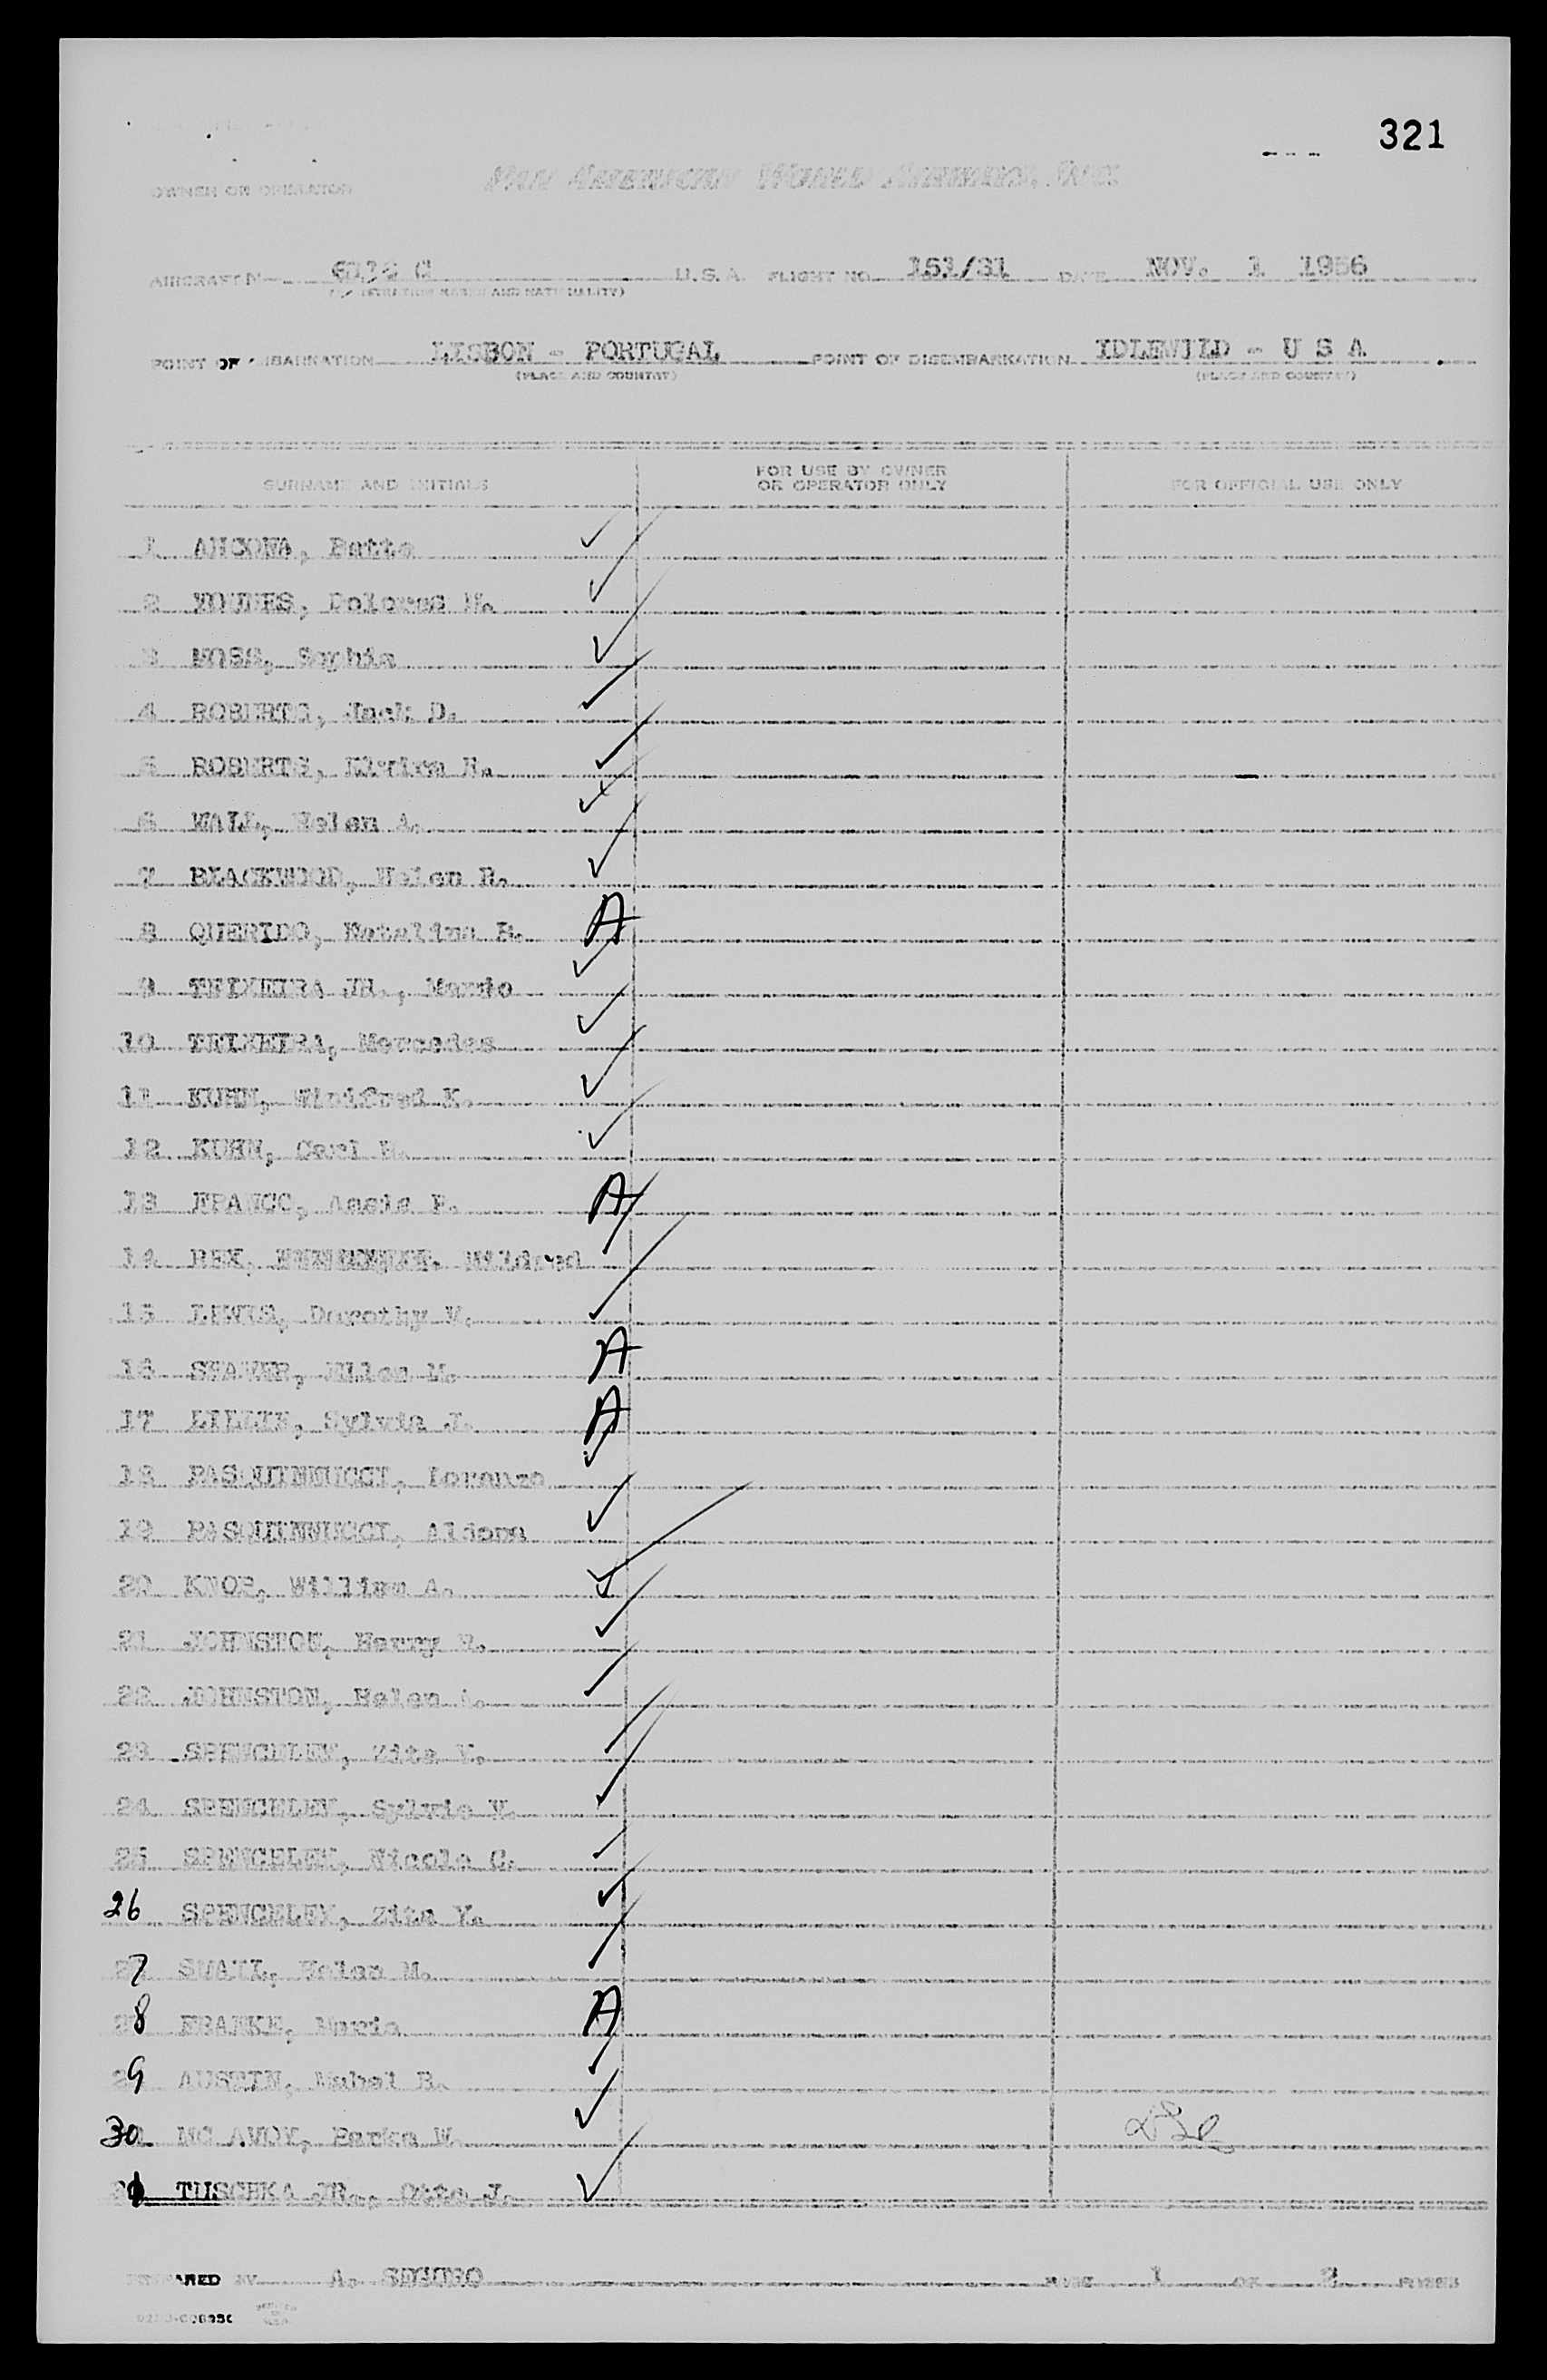 321
OWNER OR OPERATOR PAN AMERICAN WORLD AIRWAYS, INC.
AIRCRAFT N U.S.A. FLIGHT NO. 151/31 DATE NOV. 1 1956
(REGISTRATION MARKS AND NATIONALITY)
POINT OF EMBARKATION LISBON - PORTUGAL POINT OF DISEMBARKATION IDLEWILD - U S A
(PLACE AND COUNTRY) (PLACE AND COUNTRY)
SURNAME AND INITIALS FOR USE BY OWNER OR OPERATOR ONLY FOR OFFICIAL USE ONLY
1 ANCONA,
2 Dolores M.
3 MOSS, Sophia
4 ROBERTS, Jack D.
5 ROBERTS,
6 Helen A.
7 BLACKWOOD, Helen R.
8 QUERIDO, Natalina R. A
9 TEIXEIRA JR., Mario
10 TEIXEIRA, Mercedes
11 KUHN, Winifred K.
12 KUHN, Carl
13 FRANCO, Assis P. A
14 REX, Mildred
15 LEWIS, Dorothy V.
16 Ellen M. A
17 LILLIE, Sylvia J. A
18 PASQUINNUCCI, Lorenzo
19 PASQUINNUCCI,
20 William A.
21 JOHNSTON, Harry
22 JOHNSTON, Helen A.
23 SPENCELEY, Zita V.
24 SPENCELEY, Sylvie V.
25 SPENCELEY, Nicole C.
26 SPENCELEY, Zita Y.
7 Helen M.
8 FRANKE, Maria A
9 AUSTIN, Mabel R.
30 MC AVOY,
TUSCHKA JR., Otto J.
PREPARED BY A. PAGE 1 OF PAGES